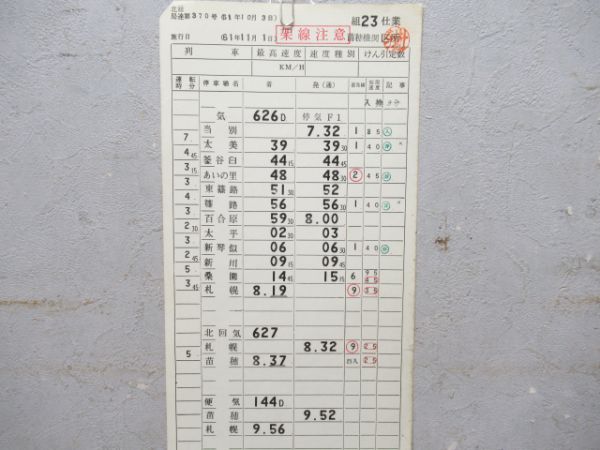 北総
局達第370号(61年10月3日)
組23仕業
施行日 (61年11月1日)
架線注意
苗穂機関区
列車 最高速度 速度種別 けん引定数
KM/H
運転時分 停車駅名 着 発(通) 記事
入換
気 626D 停気F1
当別 7.32 1 85
7
太美 39 39 30 1 40
4 45
釜谷臼 44 15 44 45
3 15
あいの里 48 48 30 2 45
3
東篠路 51 30 52
4
篠路 56 56 30 1 40
3
百合原 59 30 8.00
2 30
太平 02 30 03
3
新琴似 06 06 30 1 40
2 45
新川 09 15 09 45
5
桑園 14 45 15 15 6 95 45
3 45
札幌 8.19 9 35
北回気 627
札幌 8.32 9 25
5
苗穂 8.37 25
便気 144D
苗穂 9.52
札幌 9.56